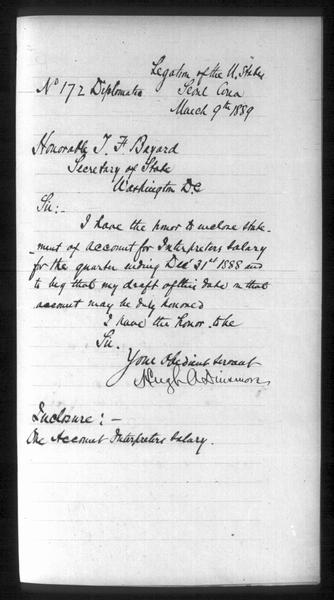 Legation of the U. States
Nº 172 Diplomatic Seoul Corea
March 9th 1889
Honorable T. F. Bayard
Secretary of State
Washington D.C
Sir:-
I have the honor to enclose state-
-ment of account for Interpreters Salary
for the quarter ending Dec 31st 1888 and
to beg that my draft of this date in that
account may be duly honored
I have the honor to be
Sir.
Your Obedient servant
Hugh A Dinsmore
Inclosure:-
One Account Interpreters Salary.